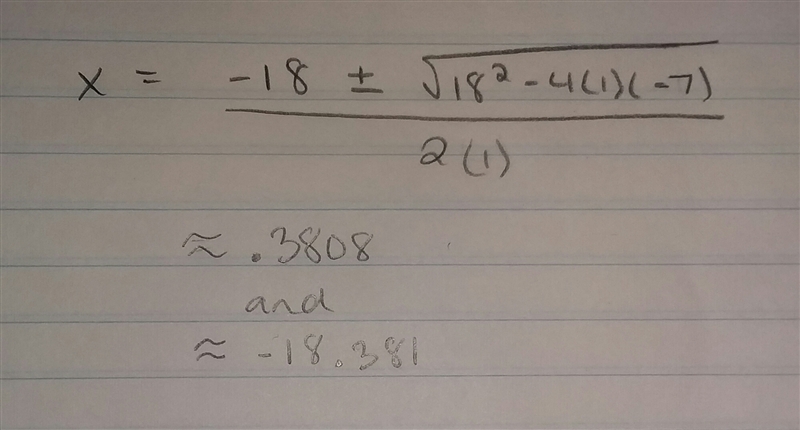 x = -18 ± √18² - 4(1)(-7)
2(1)
≈ .3808
and
≈ -18.381